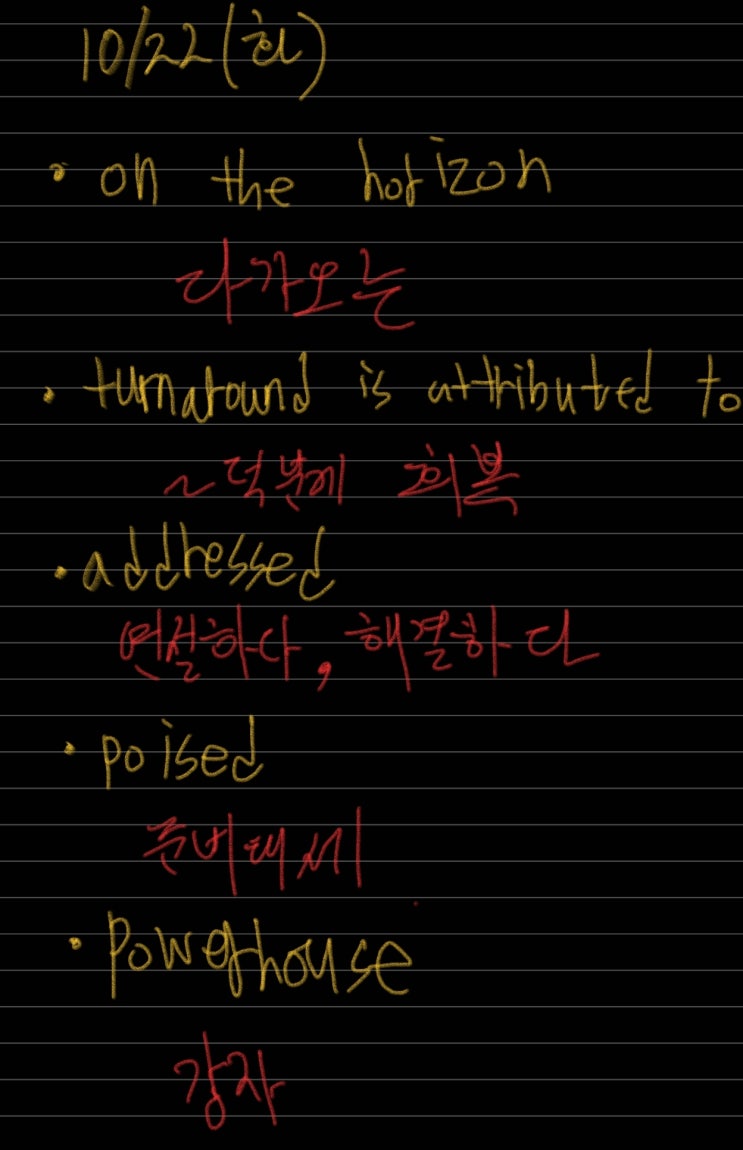 10/22(화)
• on the horizon
다가오는
• turnaround is attributed to
~덕분에 회복
• addressed
연설하다, 해결하다
• poised
준비태세
• Powerhouse
강자